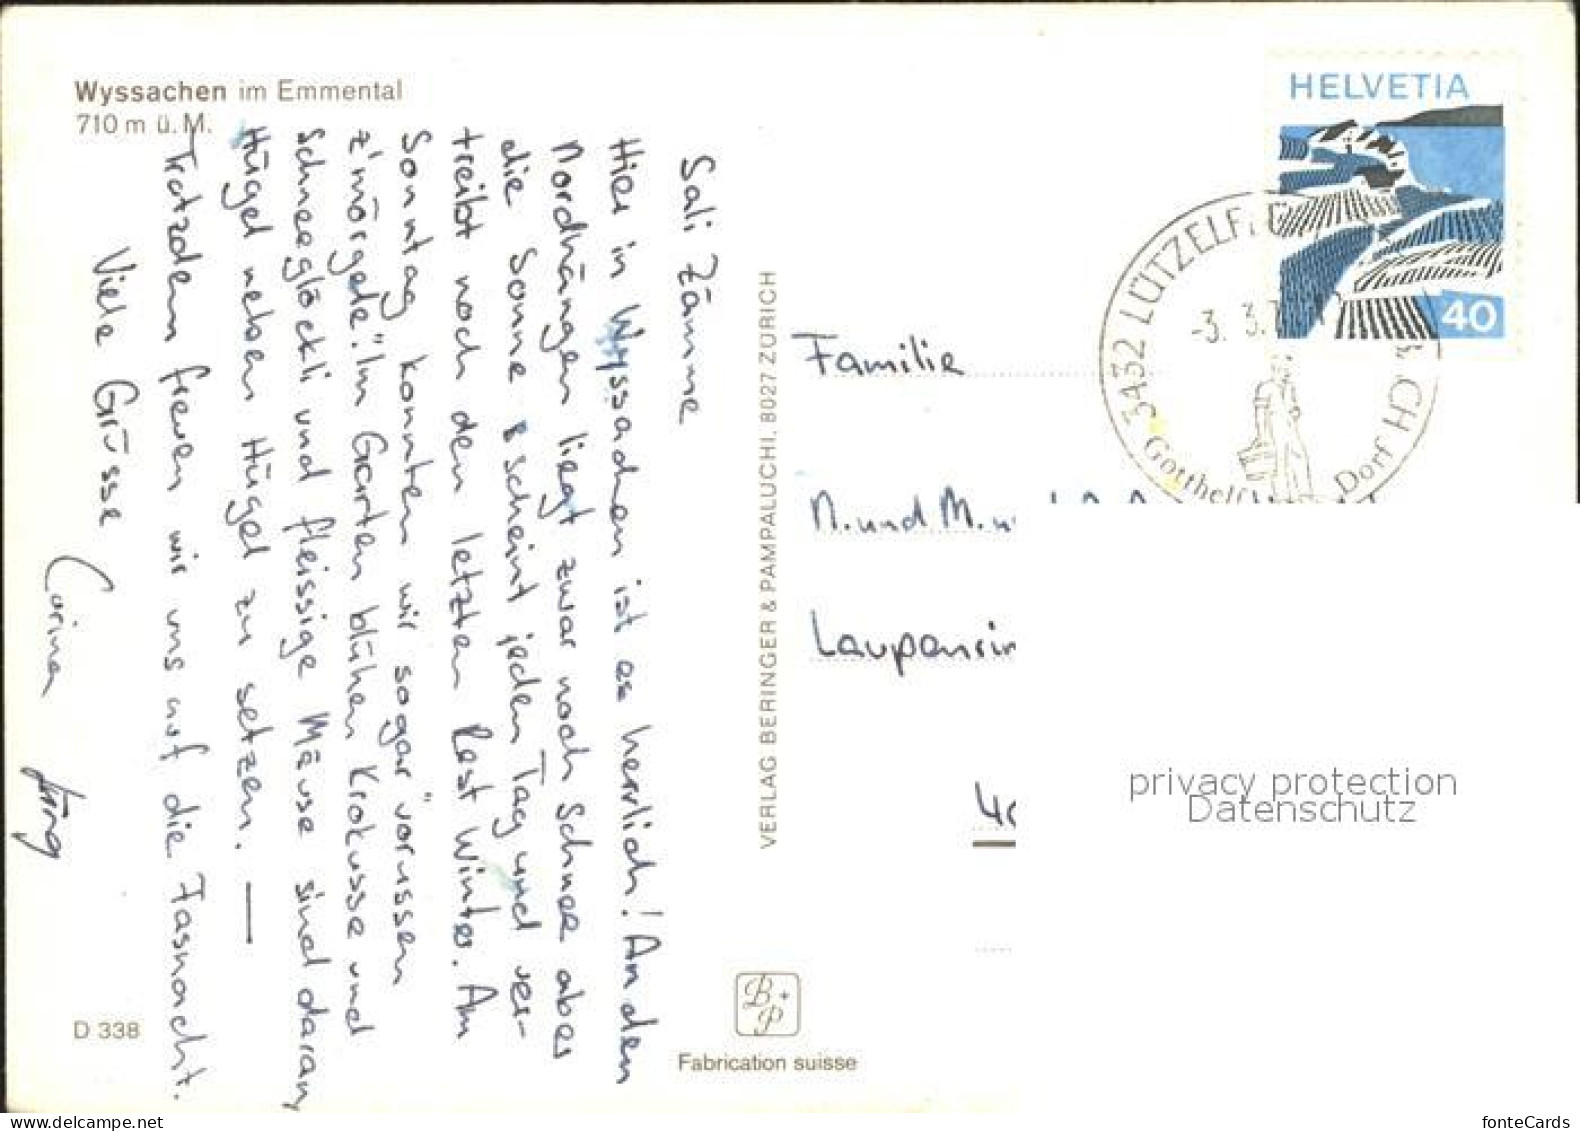 Wyssachen im Emmental
710 m ü. M.
Sali Zämme
Hier in Wyssachen ist es herrlich! An den
Nordhängen liegt zwar noch Schnee aber
die Sonne scheint jeden Tag und ver-
treibt noch den letzten Rest Winter. Am
Sonntag konnten wir sogar "vorussen
z'mörgele". Im Garten blühen Krokusse und
Schneeglöckli und fleissige Mäuse sind daran,
Hügel neben Hügel zu setzen. —
Trotzdem freuen wir uns auf die Fasnacht.
Viele Grüsse
Corinne
Jürg
D 338
VERLAG BERINGER & PAMPALUCHI, 8027 ZÜRICH
B + P
Fabrication suisse
HELVETIA
40
3432 LÜTZELFLÜ
-3. 3.
CH
Gotthelf Dorf
Familie
N. und M.
privacy protection
Datenschutz
fonteCards